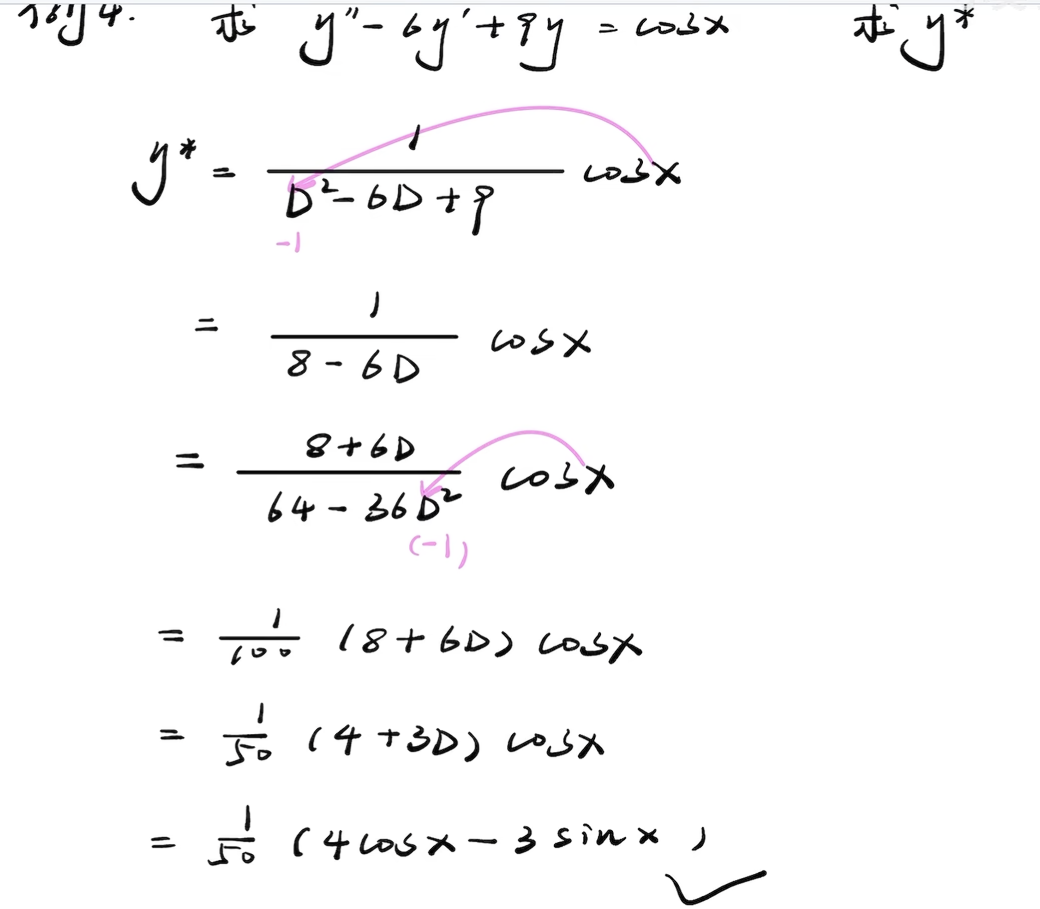 例4. 求 y'' - 6y' + 9y = cosx 求 y*
y* = 1/(D² - 6D + 9) cosx
-1
= 1/(8 - 6D) cosx
= (8 + 6D)/(64 - 36D²) cosx
(-1)
= 1/100 (8 + 6D) cosx
= 1/50 (4 + 3D) cosx
= 1/50 (4cosx - 3sinx)